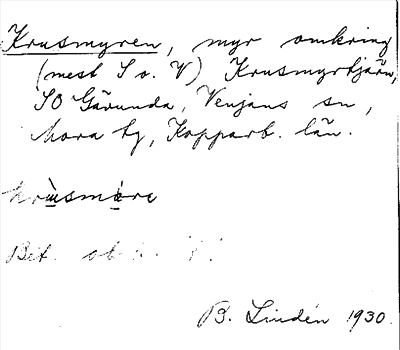 Krusmyren, myr omkring
(mest S o. V) Krusmyrtjärn,
SO Gårunda, Venjans sn,
Mora tg, Kopparb. län.
Bet.
B. Lindén 1930.